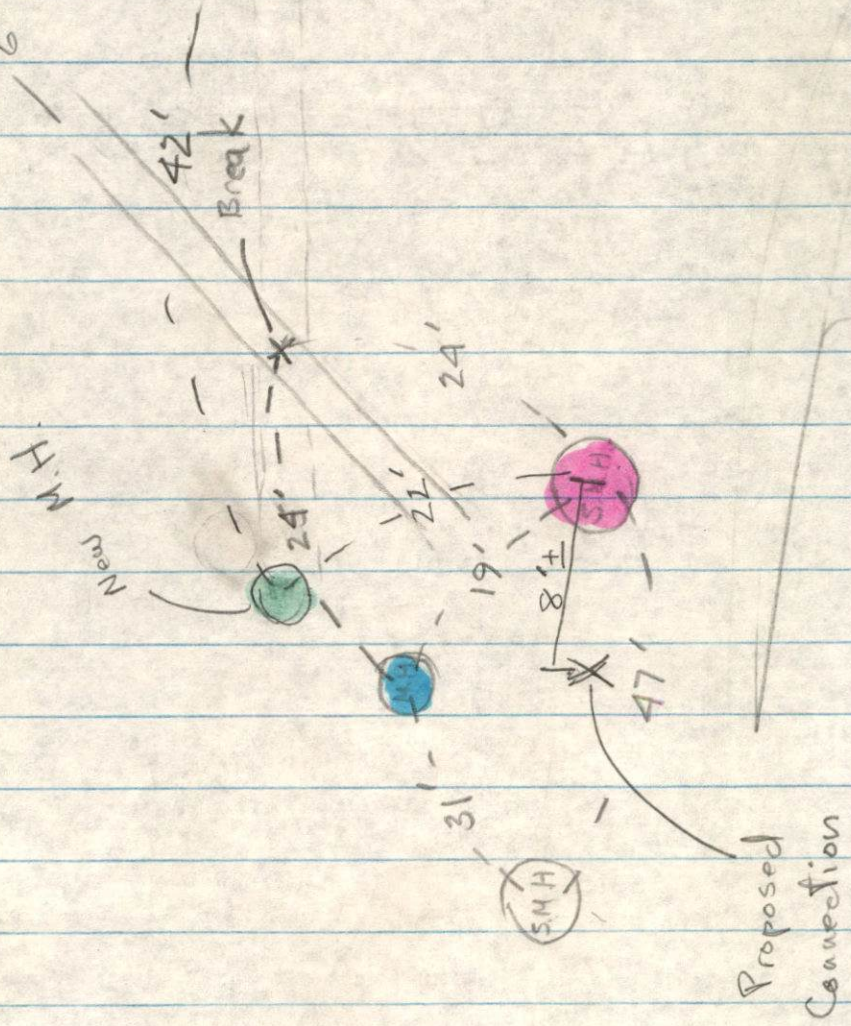 6
42'
Break
New M.H.
24'
24'
22'
19'
8'±
S.M.H
M.H
31'
47'
S.M.H
Proposed
Connection